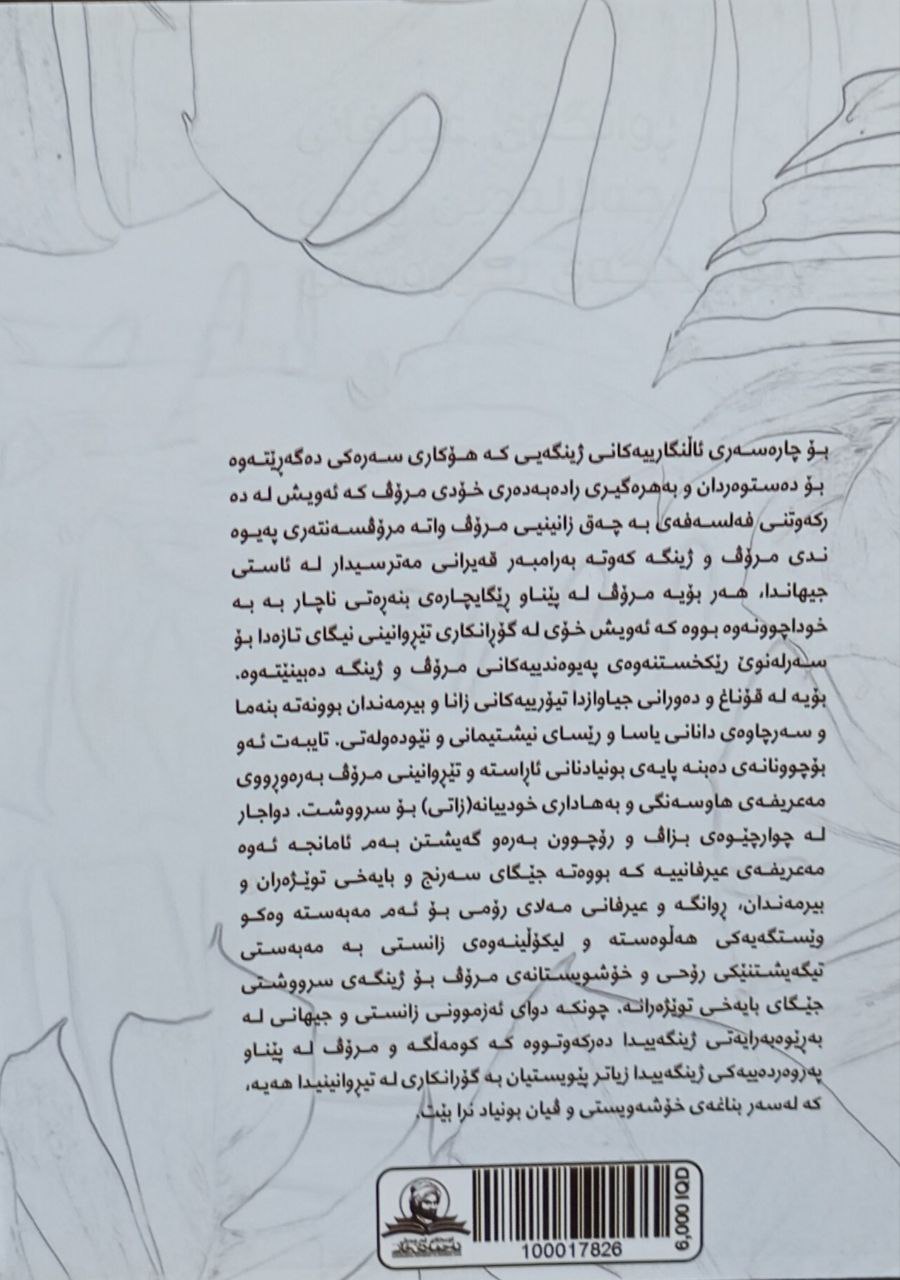 بۆ چارەسەری ئاڵنگارییەکانی ژینگەیی کە هۆکاری سەرەکی دەگەڕێتەوە
بۆ دەستوەردان و بەهرەگیری رادەبەدەری خۆدی مرۆڤ کە ئەویش لە دە
رکەوتنی فەلسەفەی بە چەق زانینیی مرۆڤ واتە مرۆڤسەنتەری پەیوە
ندی مرۆڤ و ژینگە کەوتە بەرامبەر قەیرانی مەترسیدار لە ئاستی
جیهاندا، هەر بۆیە مرۆڤ لە پێناو ڕێگایچارەی بنەرەتی ناچار بە بە
خوداچوونەوە بووە کە ئەویش خۆی لە گۆرانکاری تێڕوانینی نیگای تازەدا بۆ
سەرلەنوێ رێکخستنەوەی پەیوەندییەکانی مرۆڤ و ژینگە دەبینێتەوە.
بۆیە لە قۆناغ و دەورانی جیاوازدا تیۆرییەکانی زانا و بیرمەندان بوونەتە بنەما
و سەرچاوەی دانانی یاسا و رێسای نیشتیمانی و نێودەولەتی. تایبەت ئەو
بۆچوونانەی دەبنە پایەی بونیادنانی ئاڕاستە و تێڕوانینی مرۆڤ بەرەوڕووی
مەعریفەی هاوسەنگی و بەهاداری خودییانە(زاتی) بۆ سرووشت. دواجار
لە چوارچێوەی بزاڤ و رۆچوون بەرەو گەیشتن بەم ئامانجە ئەوە
مەعریفەی عیرفانییە کە بووەتە جێگای سەرنج و بایەخی توێژەران و
بیرمەندان، ڕوانگە و عیرفانی مەلای رۆمی بۆ ئەم مەبەستە وەکو
وێستگەیەکی هەڵوەستە و لیکۆڵینەوەی زانستی بە مەبەستی
تیگەیشتنێکی رۆحی و خۆشویستانەی مرۆڤ بۆ ژینگەی سرووشتی
جێگای بایەخی توێژەرانە. چونکە دوای ئەزموونی زانستی و جیهانی لە
بەڕێوەبەرایەتی ژینگەییدا دەرکەوتووە کە کومەڵگە و مرۆڤ لە پێناو
پەروەردەییەکی ژینگەییدا زیاتر پێویستیان بە گۆرانکاری لە تیڕوانینیدا هەیە،
کە لەسەر بناغەی خۆشەویستی و ڤیان بونیاد نرا بێت.
100017826
6,000 IQD